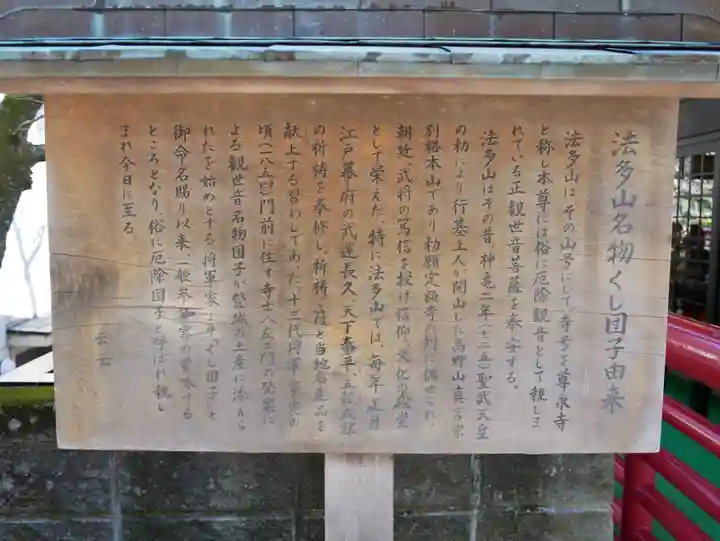 法多山名物くし団子由来
法多山はその山号にして寺号を尊永寺
と称し本尊には俗に厄除観音として親しま
れている正観世音菩薩を奉安する。
法多山はその昔神亀二年(七二五)聖武天皇
の勅により行基上人が開山した高野山真言宗
別格本山であり勅願定額寺の列に偶せられ、
朝廷、武将の篤信を授け信仰、文化の殿堂
として栄えた。特に法多山では、毎年正月
江戸幕府の武運長久、天下泰平、五穀成就
の祈祷を奉修し、祈祷、護と当地名産品を
献上する習わしであった十三代将軍家定の
頃(一八五四)門前に住す寺士八左エ門の発案に
よる観世音名物団子が登城の土産に添えら
れたを始めとする将軍家より「くし団子」と
御命名賜り以来、一般参詣客の賞味する
ところとなり、俗に厄除団子と呼ばれ親し
まれ今日に至る。
云云